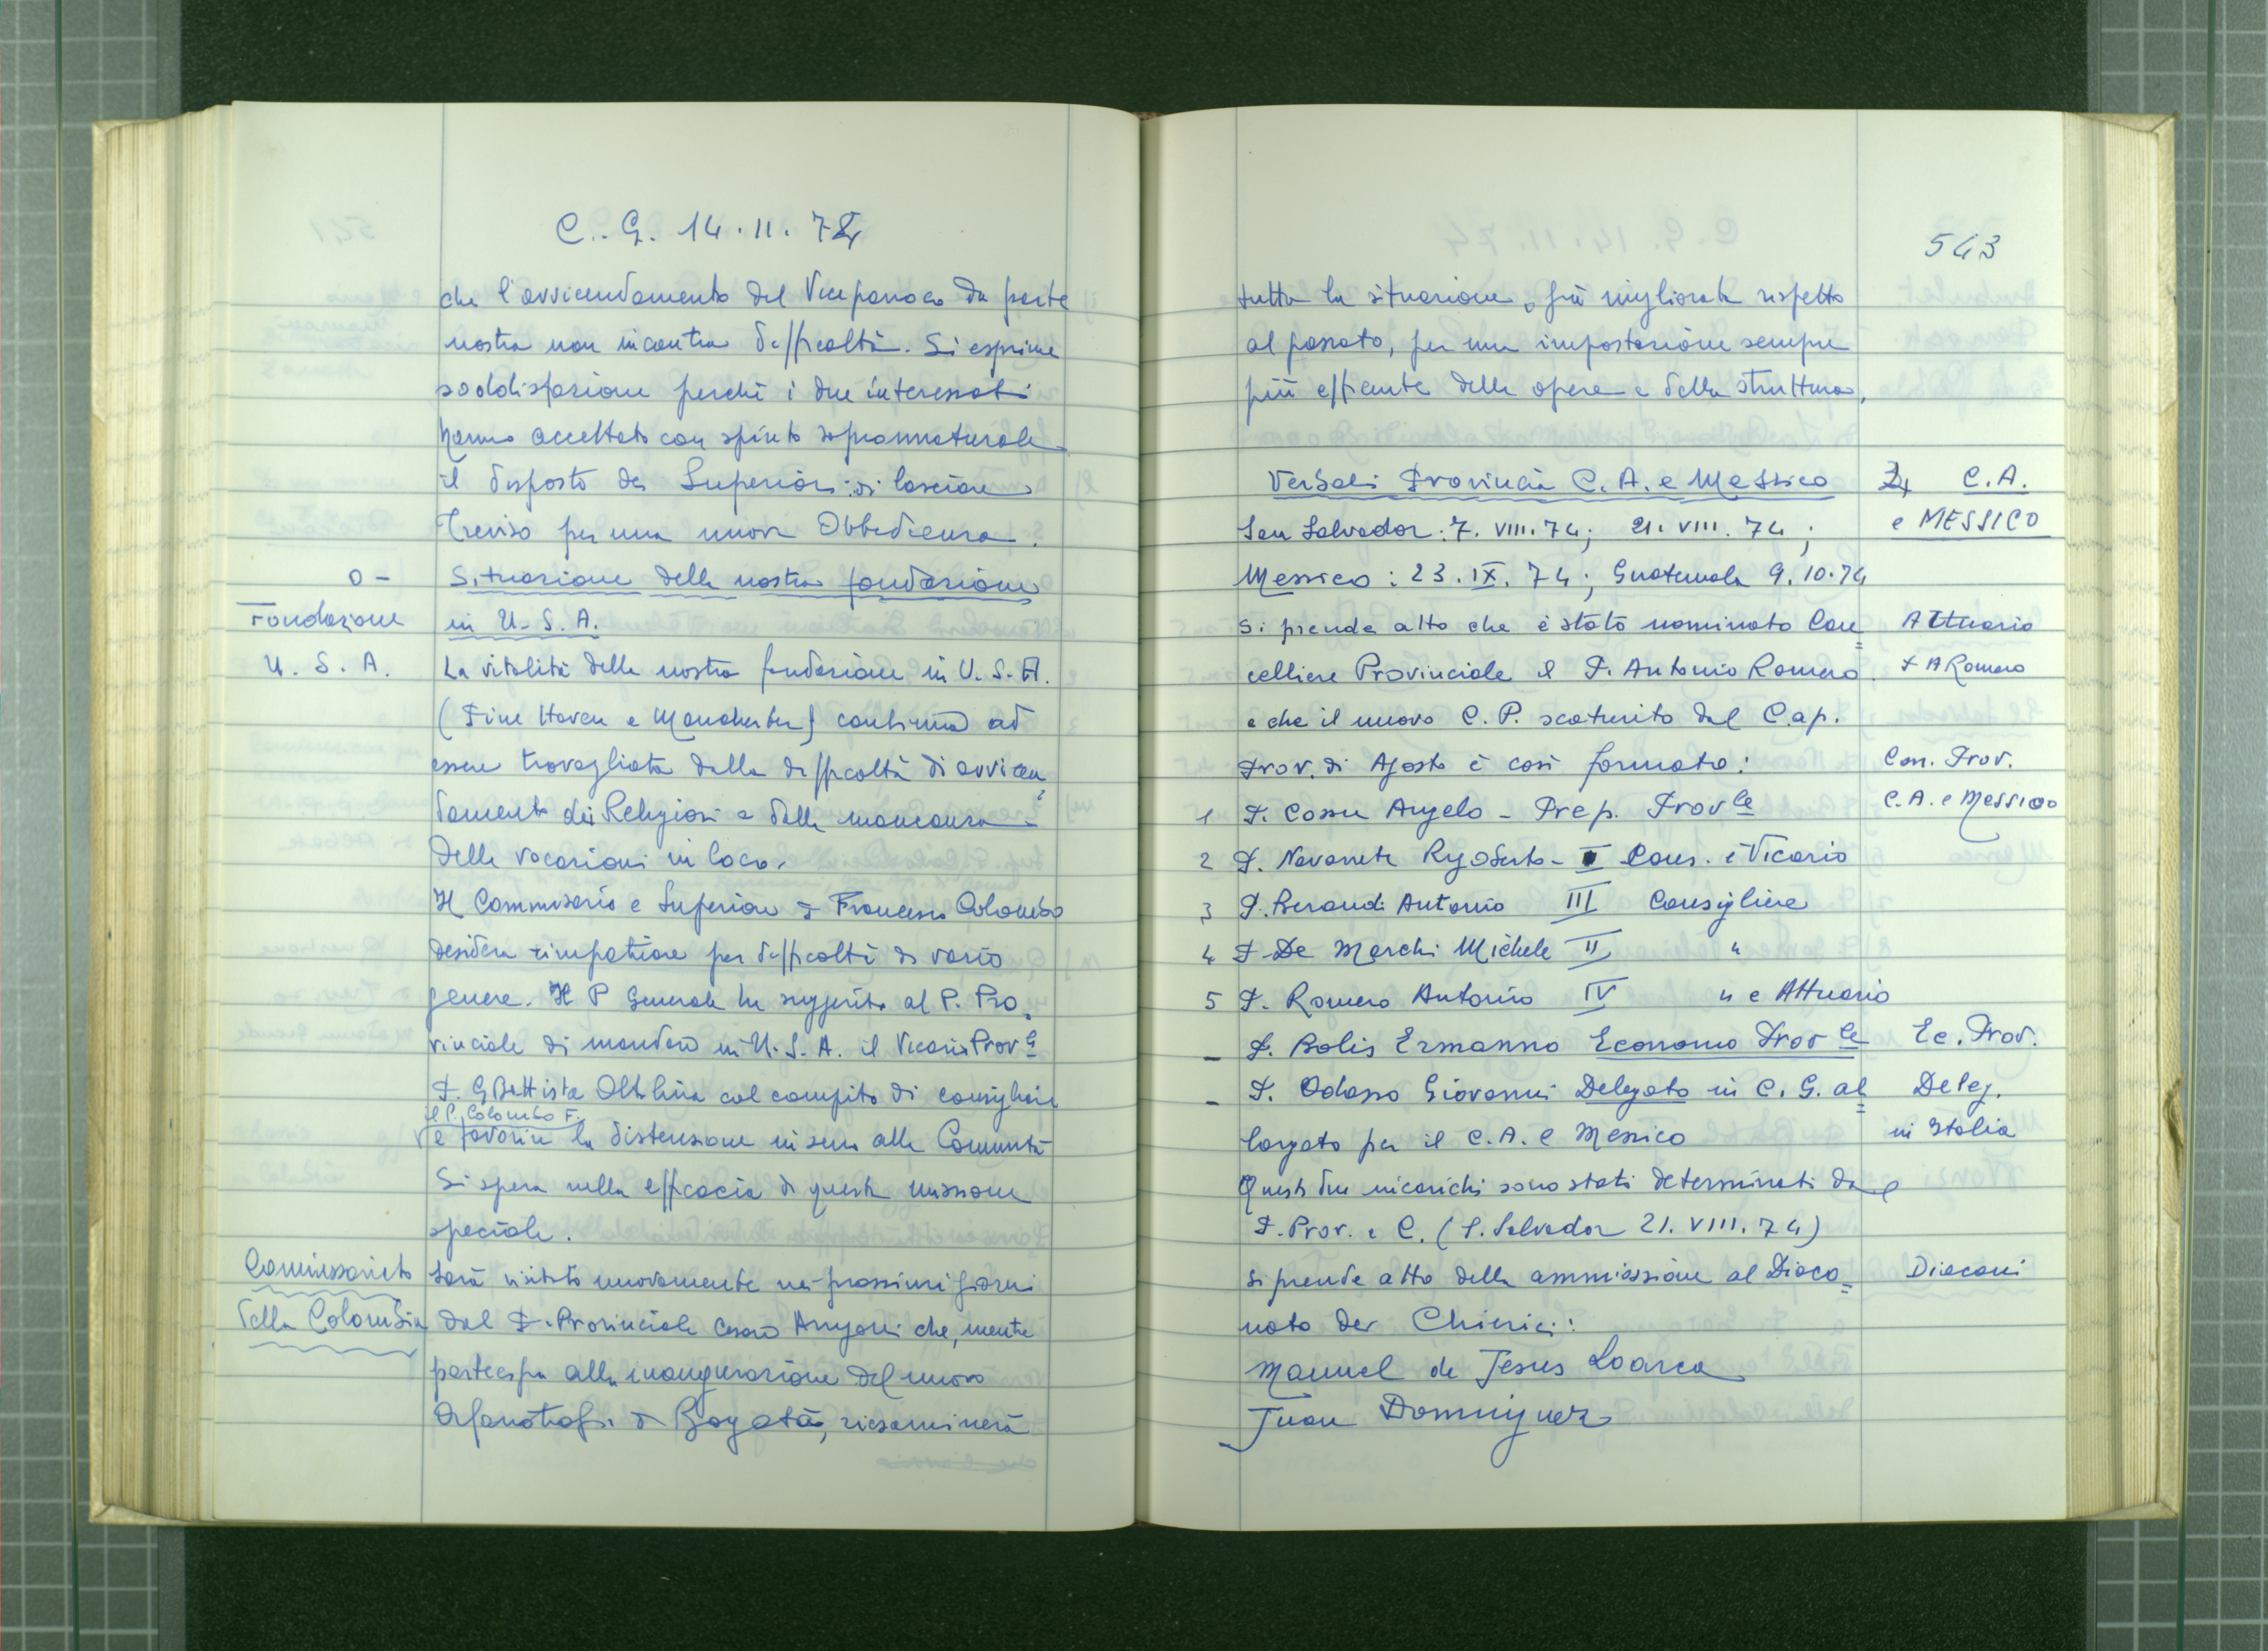 C. G. 14.11.74
che l'avvicendamento del Viceparroco da parte
nostra non incontra difficoltà. Si esprime
soddisfazione perchè i due interessati
hanno accettato con spirito soprannaturale
il disposto dei Superiori: di lasciare
Treviso per una nuova Obbedienza.
o -
Situazione della nostra fondazione
Fondazione
in U.S.A.
U. S. A.
La vitalità della nostra fondazione in U.S.A.
(Pine Haven e Manchester) continua ad
essere travagliata dalla difficoltà di avvicen=
damento dei Religiosi e dalla mancanza
delle vocazioni in loco.
Il Commissario e Superiore P. Francesco Colombo
desidera rimpatriare per difficoltà di vario
genere. Il P Generale ha suggerito al P. Pro=
vinciale di mandare in U.S.A. il Vicario Prov.le
P. G Battista Oltolina col compito di consigliare
il P. Colombo F.
e favorire la distensione in seno alla Comunità
Si spera nella efficacia di questa missione
speciale.
Commissariato
della Colombia
Sarà visitato nuovamente nei prossimi giorni
dal P. Provinciale Cesare Arrigoni che, mentre
partecipa alla inaugurazione del nuovo
Orfanotrofio di Bogotà, riesaminerà
543
tutta la situazione, già migliorata rispetto
al passato, per una impostazione sempre
più efficente delle opere e della struttura.
Verbali Provincia C. A. e Messico
C.A.
e MESSICO
San Salvador: 7. VIII. 74; 21. VIII. 74;
Messico: 23. IX. 74; Guatemala 9.10.74
Si prende atto che è stato nominato Can=
Attuario
celliere Provinciale il P. Antonio Romero
P A Romero
e che il nuovo C. P. scaturito dal Cap.
Prov. di Agosto è così formato:
Con. Prov.
C.A. e Messico
1 P. Cossu Angelo - Prep. Prov.le
2 P. Navarrete Rigoberto - I Cons. e Vicario
3 P. Beraudi Antonio III Consigliere
4 P. De Marchi Michele II "
5 P. Romero Antonio IV " e Attuario
- P. Bolis Ermanno Economo Prov.le
Ec. Prov.
- P. Odasso Giovanni Delegato in C. G. al=
Deleg.
largato per il C.A. e Messico
in Italia
Questi due incarichi sono stati determinati dal
P. Prov. e C. (S. Salvador 21. VIII. 74)
Si prende atto della ammissione al Diaco=
Diaconi
nato dei Chierici:
Manuel de Jesus Loarca
Juan Dominguez